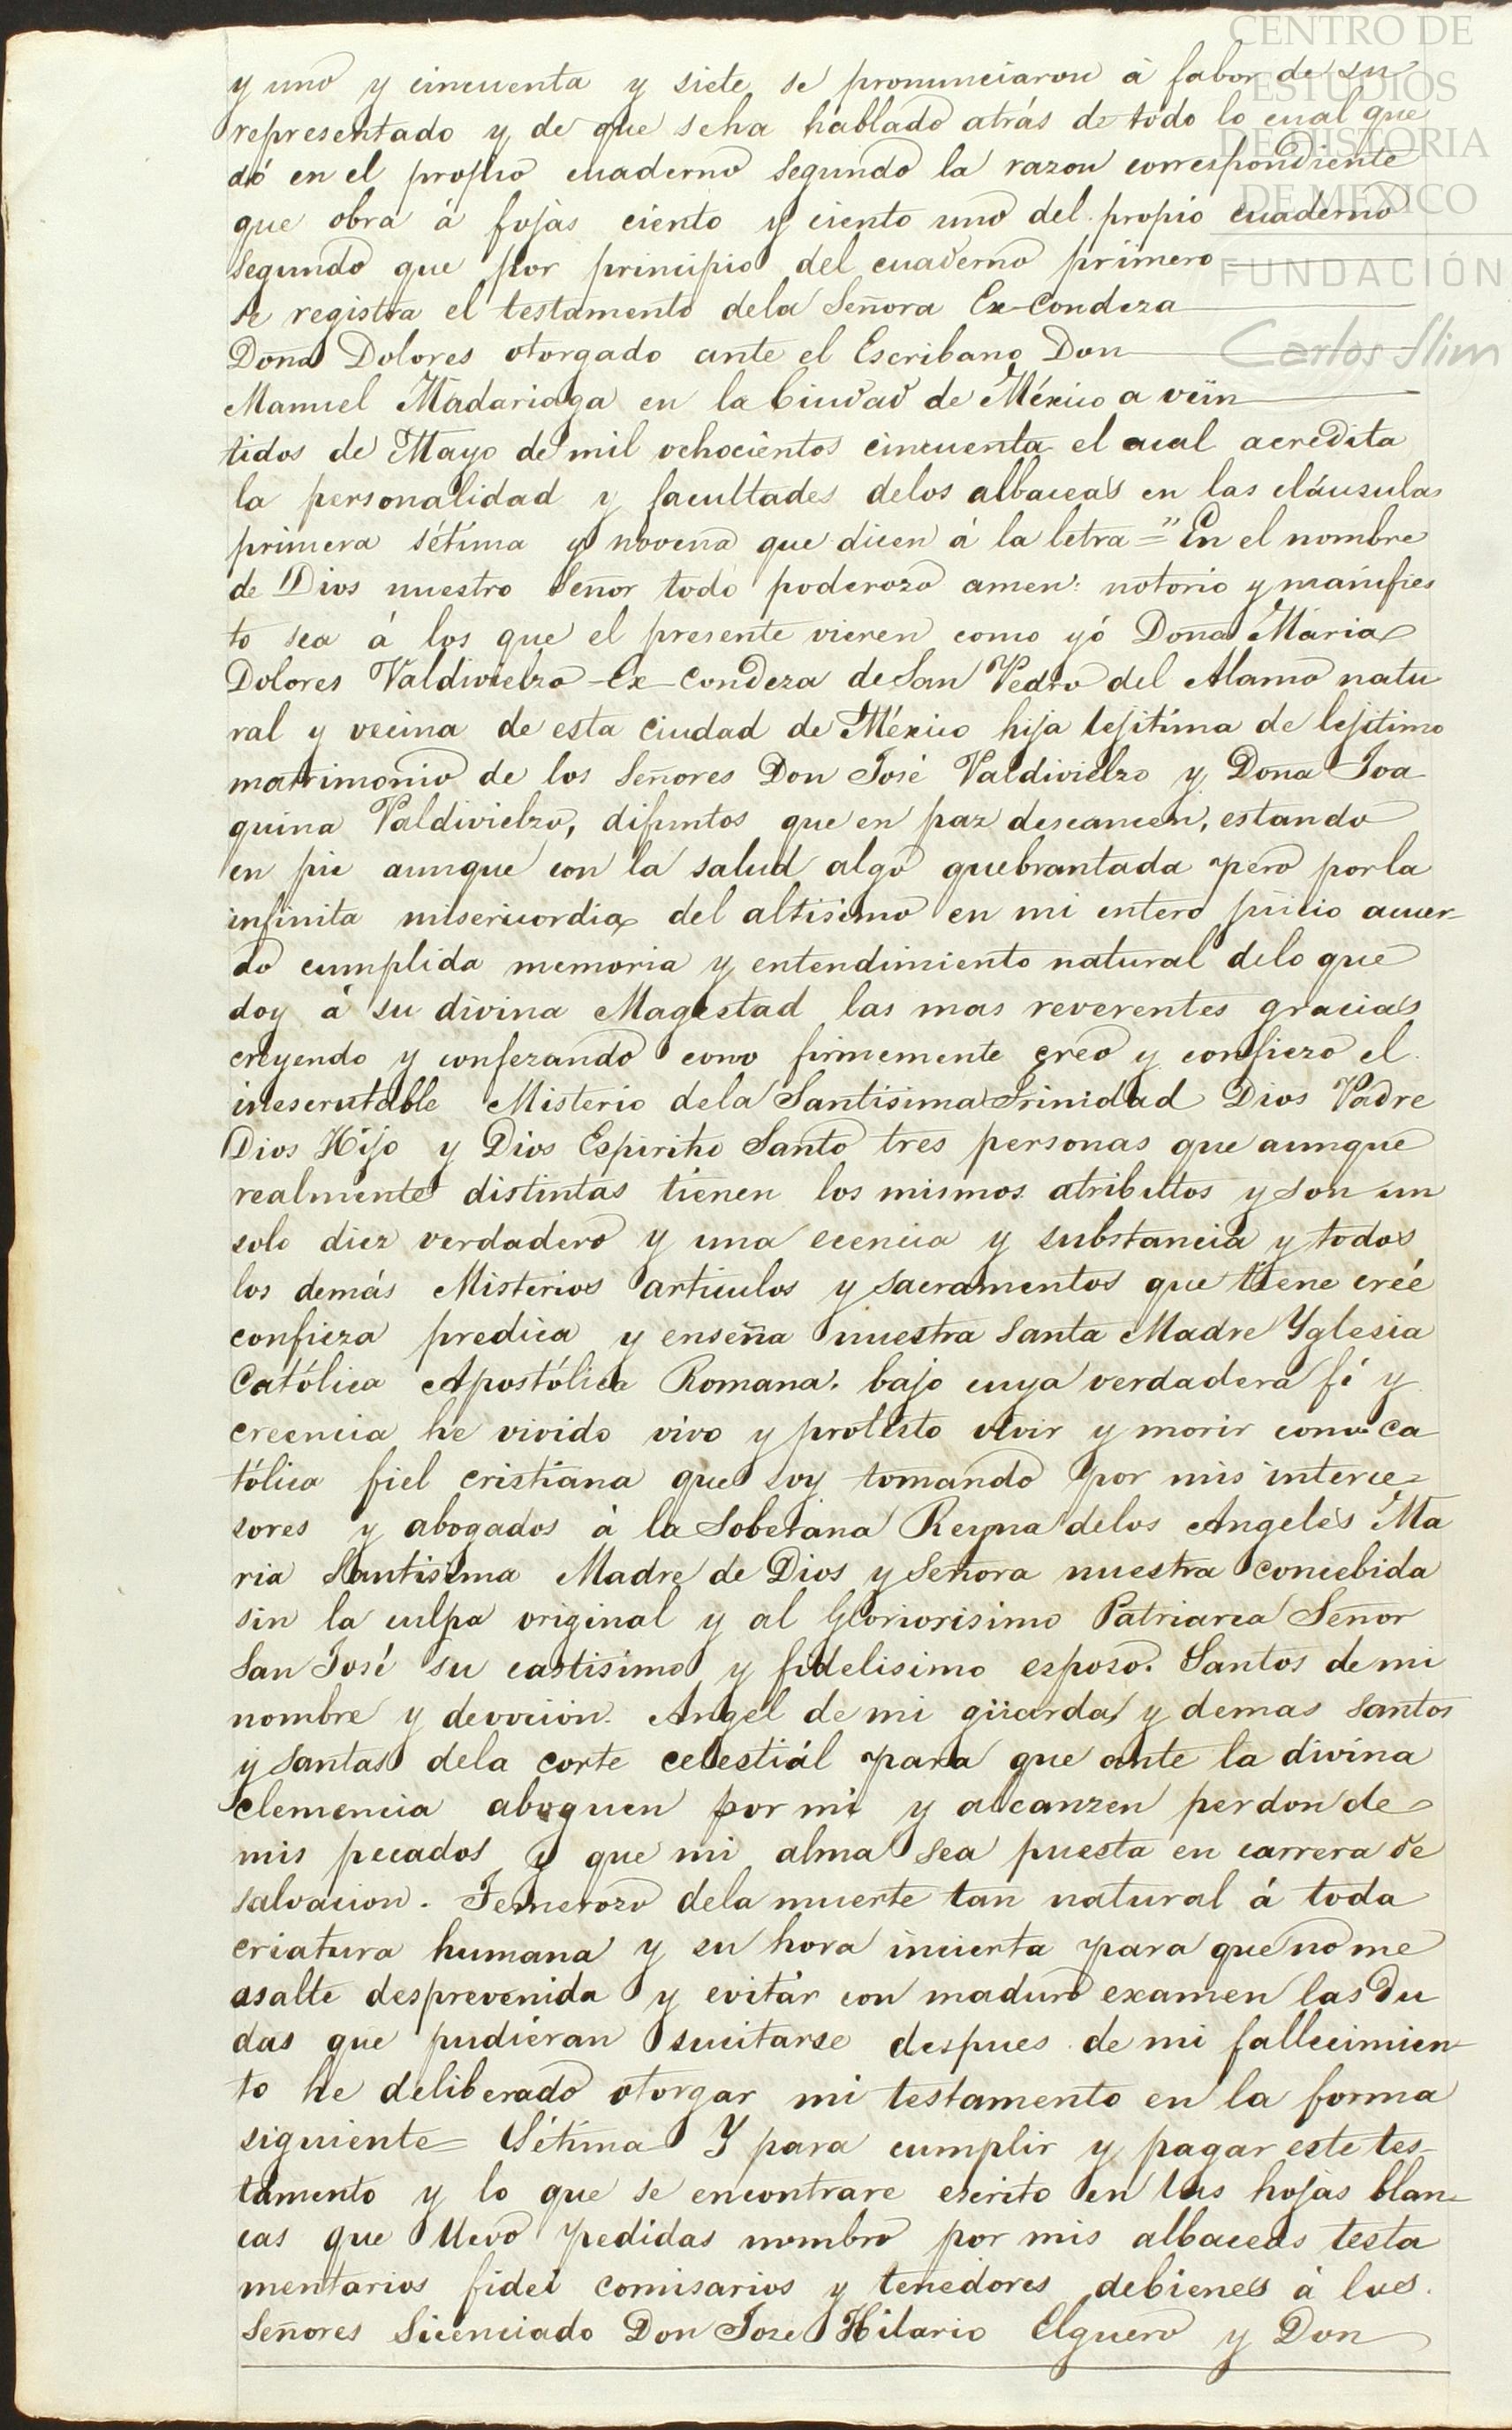 CENTRO DE
ESTUDIOS
DE HISTORIA
DE MÉXICO
FUNDACIÓN
Carlos Slim
y uno y cincuenta y siete se pronunciaron á fabor de su
representado y de que seha hablado atrás de todo lo cual que
dó en el propio cuaderno segundo la razon correspondiente
que obra á fojas ciento y ciento uno del propio cuaderno
segundo que por principio del cuaderno primero
se registra el testamento dela Señora Ex-Condeza
Doña Dolores otorgado ante el Escribano Don
Manuel Madariaga en la Ciudad de México a vein
tidos de Mayo de mil ochocientos cincuenta el cual acredita
la personalidad y facultades delos albaceas en las cláusulas
primera sétima y novena que dicen á la letra = "En el nombre
de Dios nuestro Señor todo poderozo amen: notorio y manifies
to sea á los que el presente vieren como yó Doña Maria
Dolores Valdivielzo Ex-Condeza de San Pedro del Alamo natu
ral y vecina de esta Ciudad de México hija lejitima de lejitimo
matrimonio de los Señores Don José Valdivielzo y Doña Joa
quina Valdivielzo, difuntos que en paz descancen, estando
en pie aunque con la salud algo quebrantada pero porla
infinita misericordia del altisimo en mi entero juicio acuer-
do cumplida memoria y entendimiento natural delo que
doy á su divina Magestad las mas reverentes gracias
creyendo y confezando como firmemente creo y confiezo el
inescrutable Misterio dela Santisima Trinidad Dios Padre
Dios Hijo y Dios Espiritu Santo tres personas que aunque
realmente distintas tienen los mismos atributos y son un
solo diez verdadero y una ecencia y substancia y todos
los demás Misterios articulos y sacramentos que tiene creé
confieza predica y enseña nuestra Santa Madre Yglesia
Católica Apostólica Romana. bajo cuya verdadera fé y
creencia he vivido vivo y protesto vivir y morir como ca
tólica fiel cristiana que soy tomando por mis interce-
sores y abogados á la Soberana Reyna delos Angeles Ma
ria Santisima Madre de Dios y Señora nuestra concebida
sin la culpa original y al Gloriosisimo Patriarca Señor
San José su castisimo y fidelisimo espozo. Santos de mi
nombre y devocion. Angel de mi guarda y demas santos
y santas dela corte celestiál para que ante la divina
clemencia aboguen por mi y alcanzen perdon de
mis pecados y que mi alma sea puesta en carrera de
salvacion. Temerozo dela muerte tan natural á toda
criatura humana y su hora incierta para que no me
asalte desprevenida y evitár con maduro examen las du
das que pudieran sucitarse despues de mi fallecimien
to he deliberado otorgar mi testamento en la forma
siguiente = Sétima Y para cumplir y pagar este tes-
tamento y lo que se encontrare escrito en las hojas blan-
cas que llevo pedidas nombro por mis albaceas testa
mentarios fidei comisarios y tenedores debienes á los
Señores Licenciado Don Joze Hilario Elguero y Don